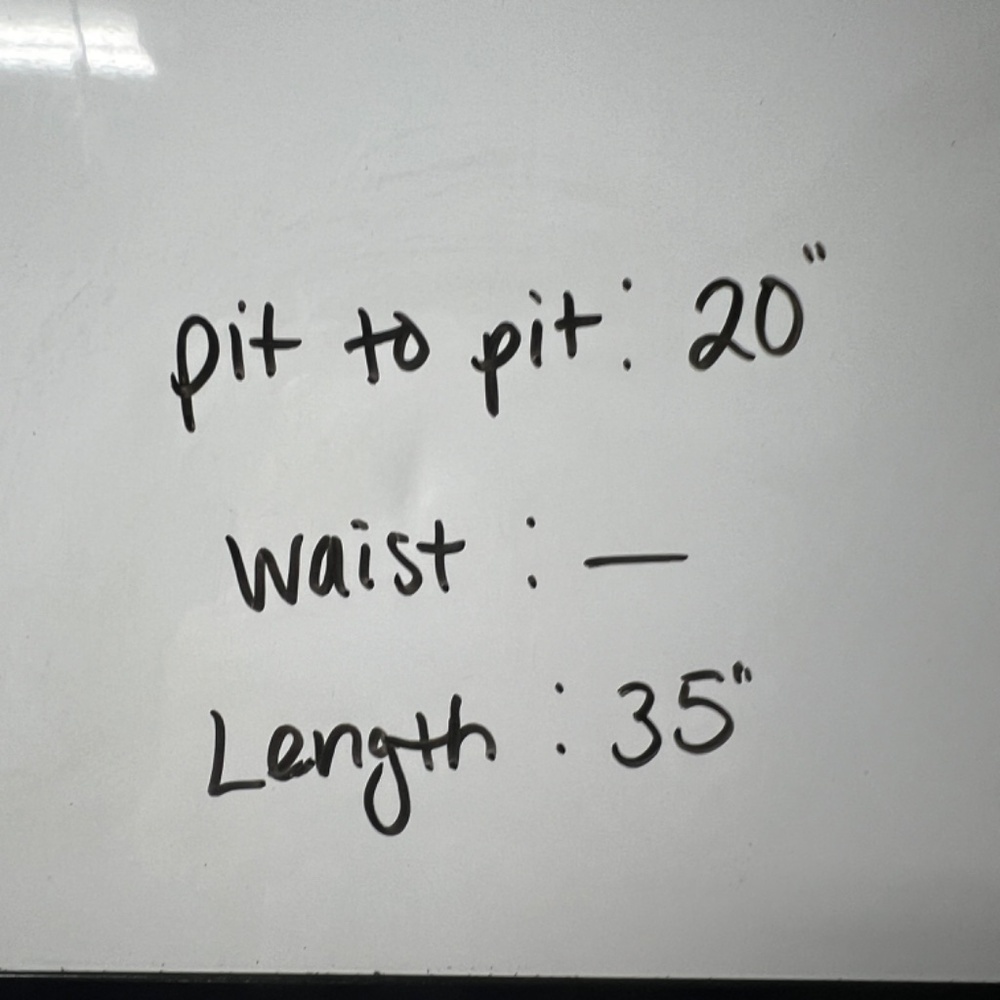 pit to pit: 20"
waist : —
Length : 35"